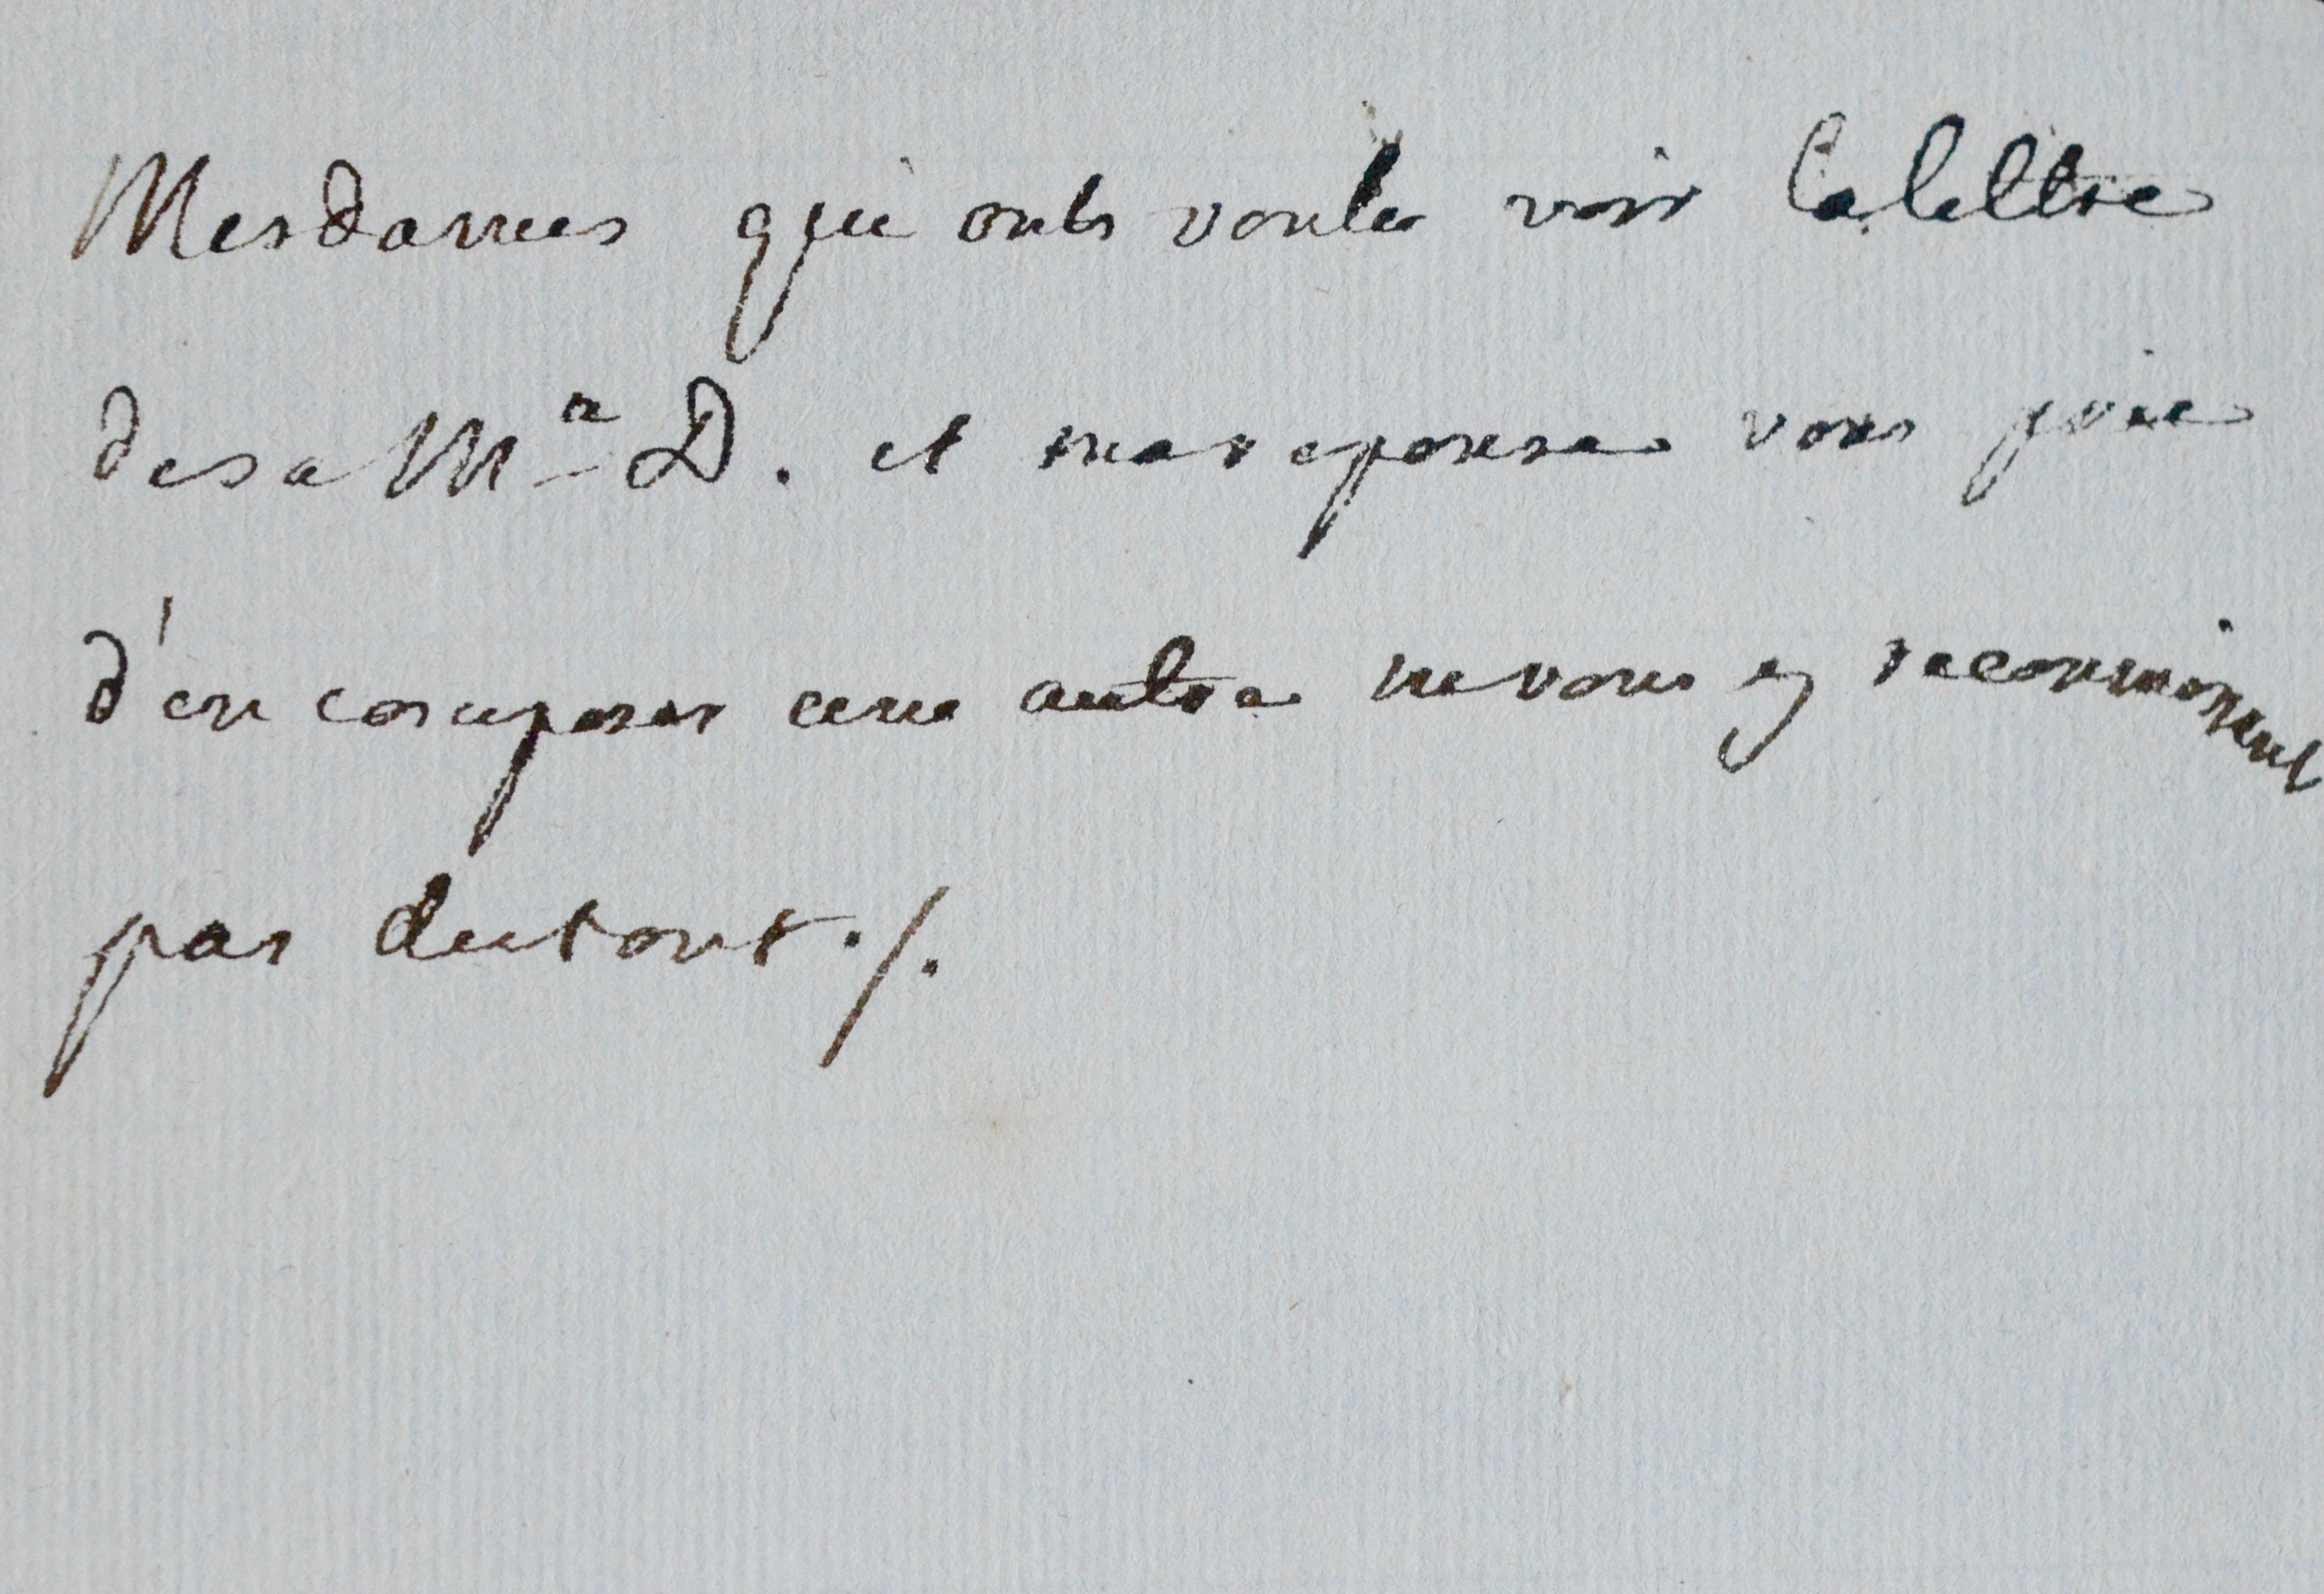 Mesdames qui onts voulu voir la lettre
de sa M.r D. et ma reponse vous prie
d'en composer une autre ne vous y reconnoisent
pas du tout ./.